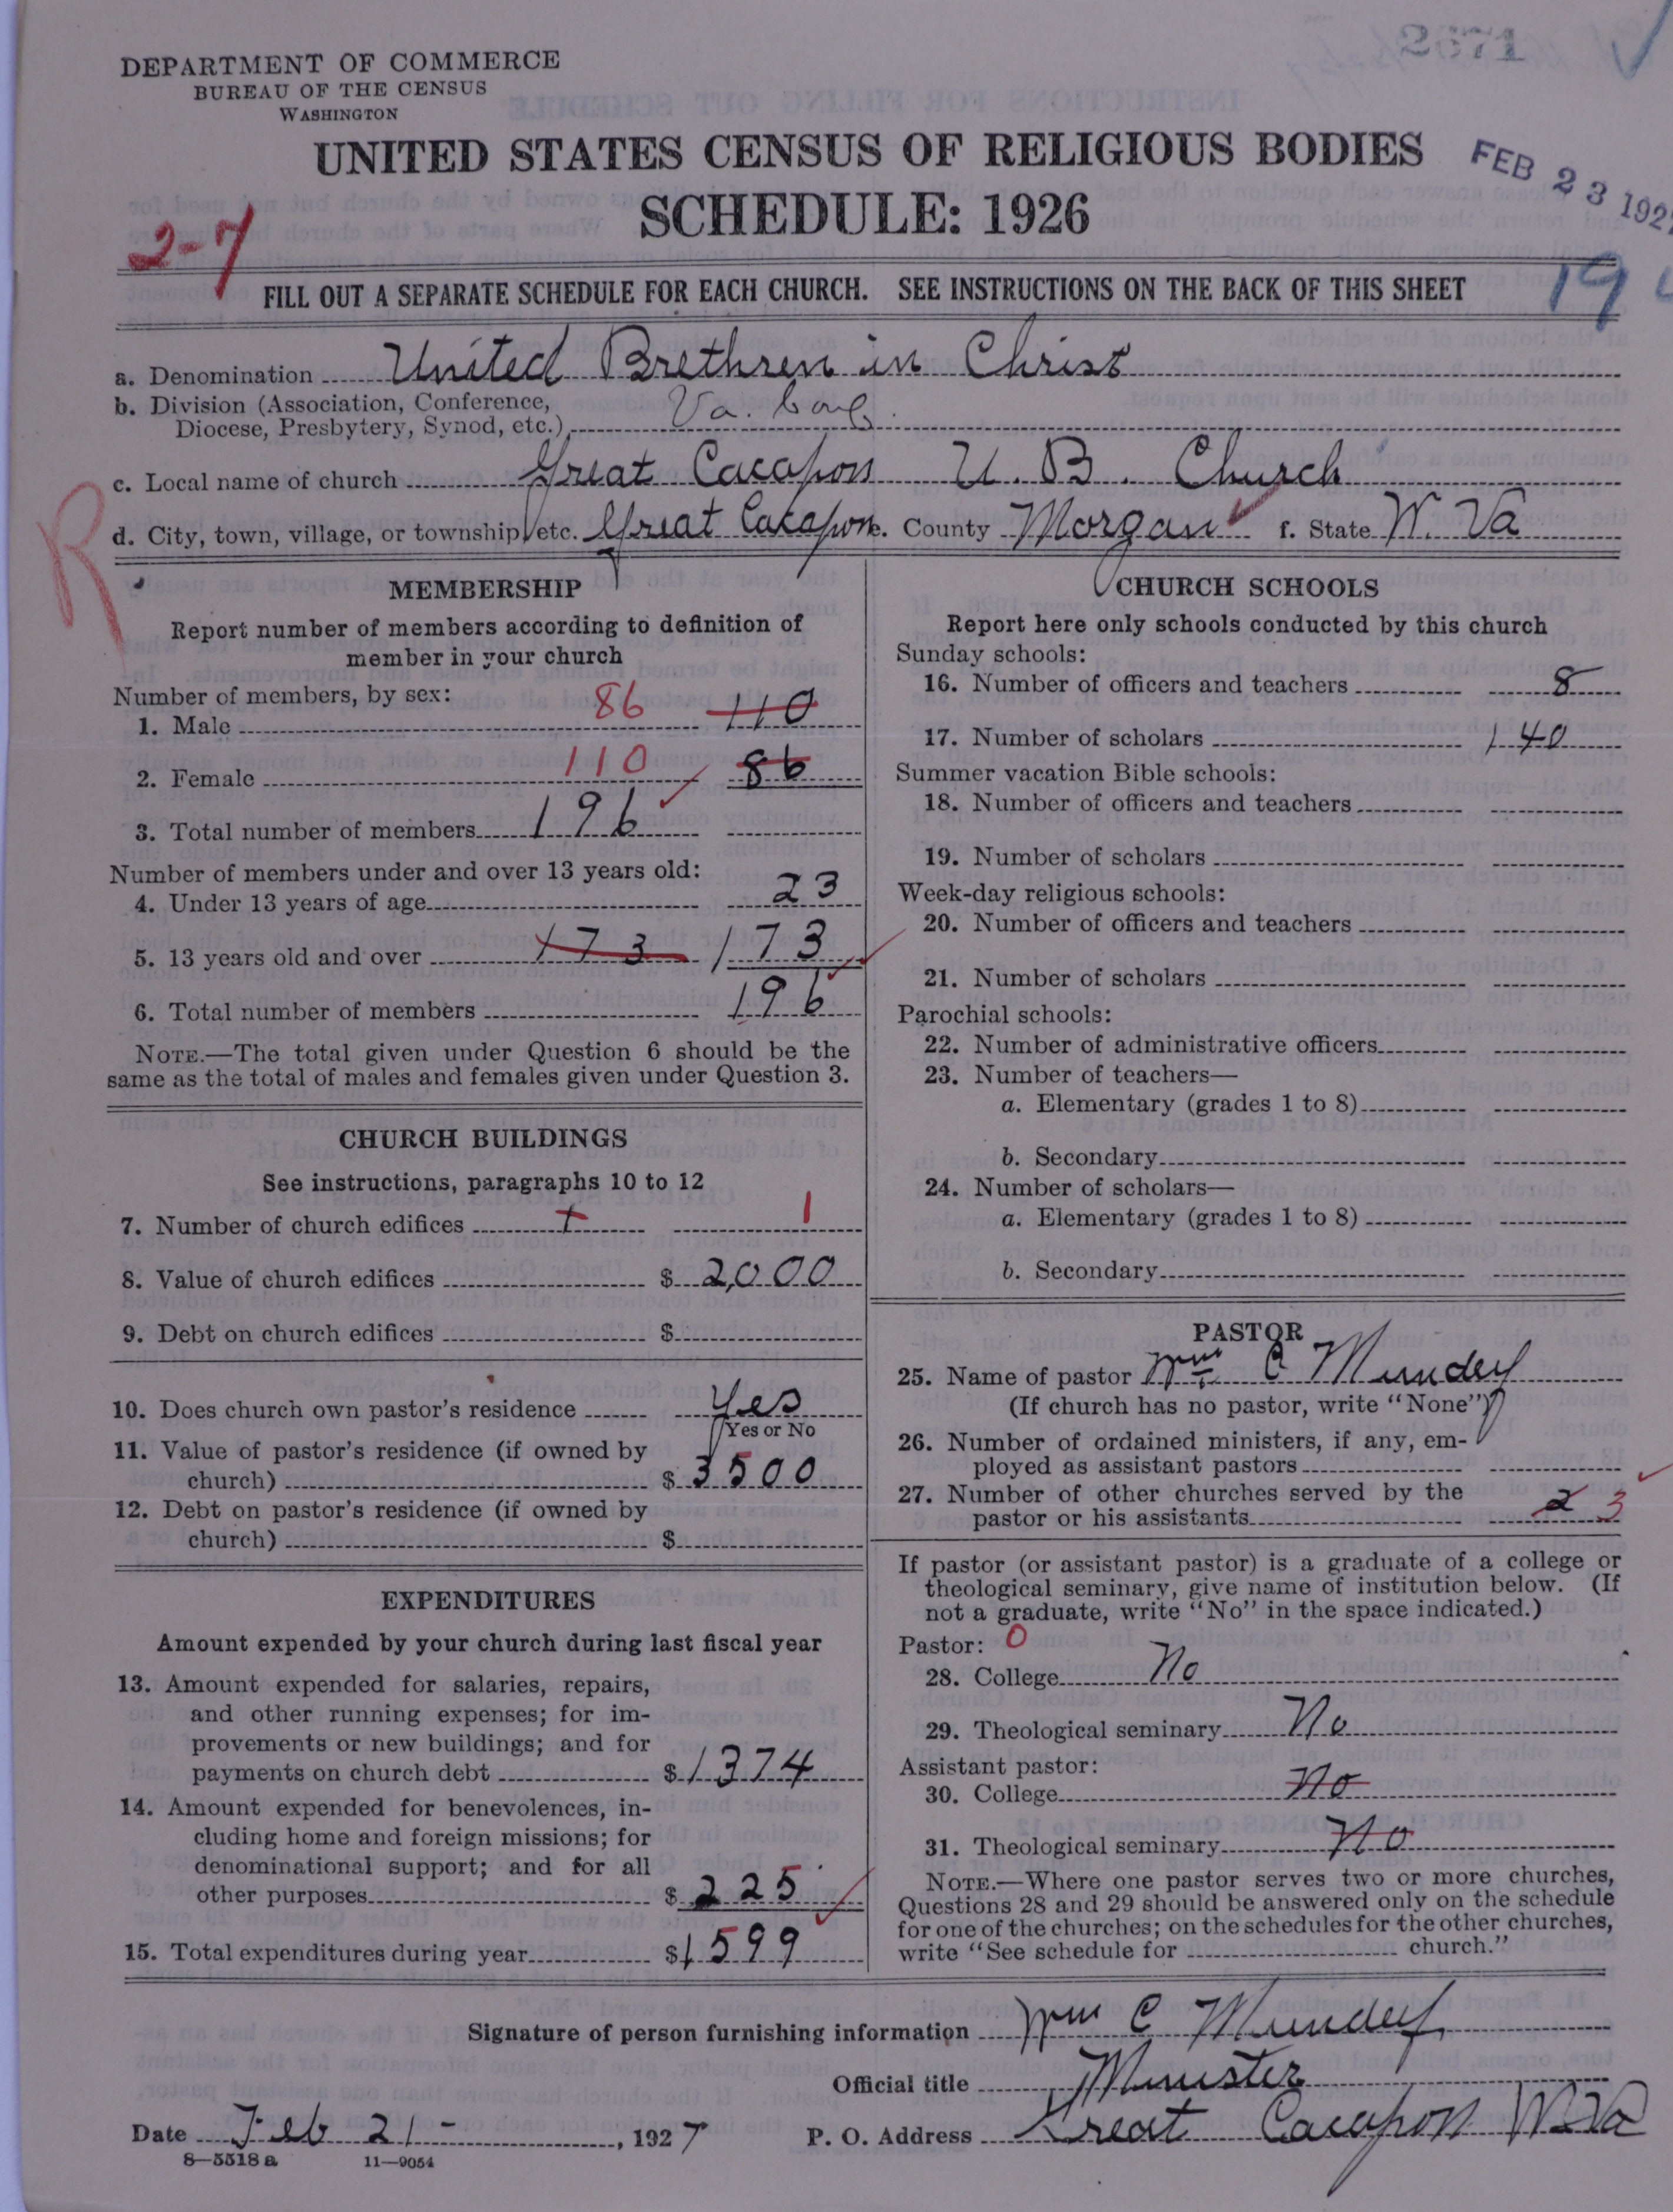 1782
DEPARTMENT OF COMMERCE
BUREAU OF THE CENSUS
WASHINGTON
UNITED STATES CENSUS OF RELIGIOUS BODIES
SCHEDULE: 1926
FEB 23 192
2-7
FILL OUT A SEPARATE SCHEDULE FOR EACH CHURCH. SEE INSTRUCTIONS ON THE BACK OF THIS SHEET
19
a. Denomination United Brethren in Christ
b. Division (Association, Conference,
Diocese, Presbytery, Synod, etc.) Va. Conf.
c. Local name of church Great Cacapon U. B. Church
d. City, town, village, or township, etc. Great Cacapon e. County Morgan f. State W. Va
R
MEMBERSHIP
Report number of members according to definition of
member in your church
Number of members, by sex:
1. Male 86 110
2. Female 110 86
3. Total number of members 196
Number of members under and over 13 years old:
4. Under 13 years of age 23
5. 13 years old and over 173 173
6. Total number of members 196
NOTE.—The total given under Question 6 should be the
same as the total of males and females given under Question 3.
CHURCH BUILDINGS
See instructions, paragraphs 10 to 12
7. Number of church edifices 1 1
8. Value of church edifices $ 2,000
9. Debt on church edifices $
10. Does church own pastor's residence Yes
Yes or No
11. Value of pastor's residence (if owned by
church) $ 3500
12. Debt on pastor's residence (if owned by
church) $
EXPENDITURES
Amount expended by your church during last fiscal year
13. Amount expended for salaries, repairs,
and other running expenses; for im-
provements or new buildings; and for
payments on church debt $ 1374
14. Amount expended for benevolences, in-
cluding home and foreign missions; for
denominational support; and for all
other purposes $ 225
15. Total expenditures during year $ 1599
CHURCH SCHOOLS
Report here only schools conducted by this church
Sunday schools:
16. Number of officers and teachers 8
17. Number of scholars 140
Summer vacation Bible schools:
18. Number of officers and teachers
19. Number of scholars
Week-day religious schools:
20. Number of officers and teachers
21. Number of scholars
Parochial schools:
22. Number of administrative officers
23. Number of teachers—
a. Elementary (grades 1 to 8)
b. Secondary
24. Number of scholars—
a. Elementary (grades 1 to 8)
b. Secondary
PASTOR
25. Name of pastor Wm C Mundey
(If church has no pastor, write "None")
26. Number of ordained ministers, if any, em-
ployed as assistant pastors
27. Number of other churches served by the
pastor or his assistants 2 3
If pastor (or assistant pastor) is a graduate of a college or
theological seminary, give name of institution below. (If
not a graduate, write "No" in the space indicated.)
Pastor: 0
28. College No
29. Theological seminary No
Assistant pastor:
30. College No
31. Theological seminary No
NOTE.—Where one pastor serves two or more churches,
Questions 28 and 29 should be answered only on the schedule
for one of the churches; on the schedules for the other churches,
write "See schedule for church."
Signature of person furnishing information Wm C Mundey
Official title Minister
Date Feb 21- , 1927 P. O. Address Great Cacapon W. Va
8—5518 a 11—9054